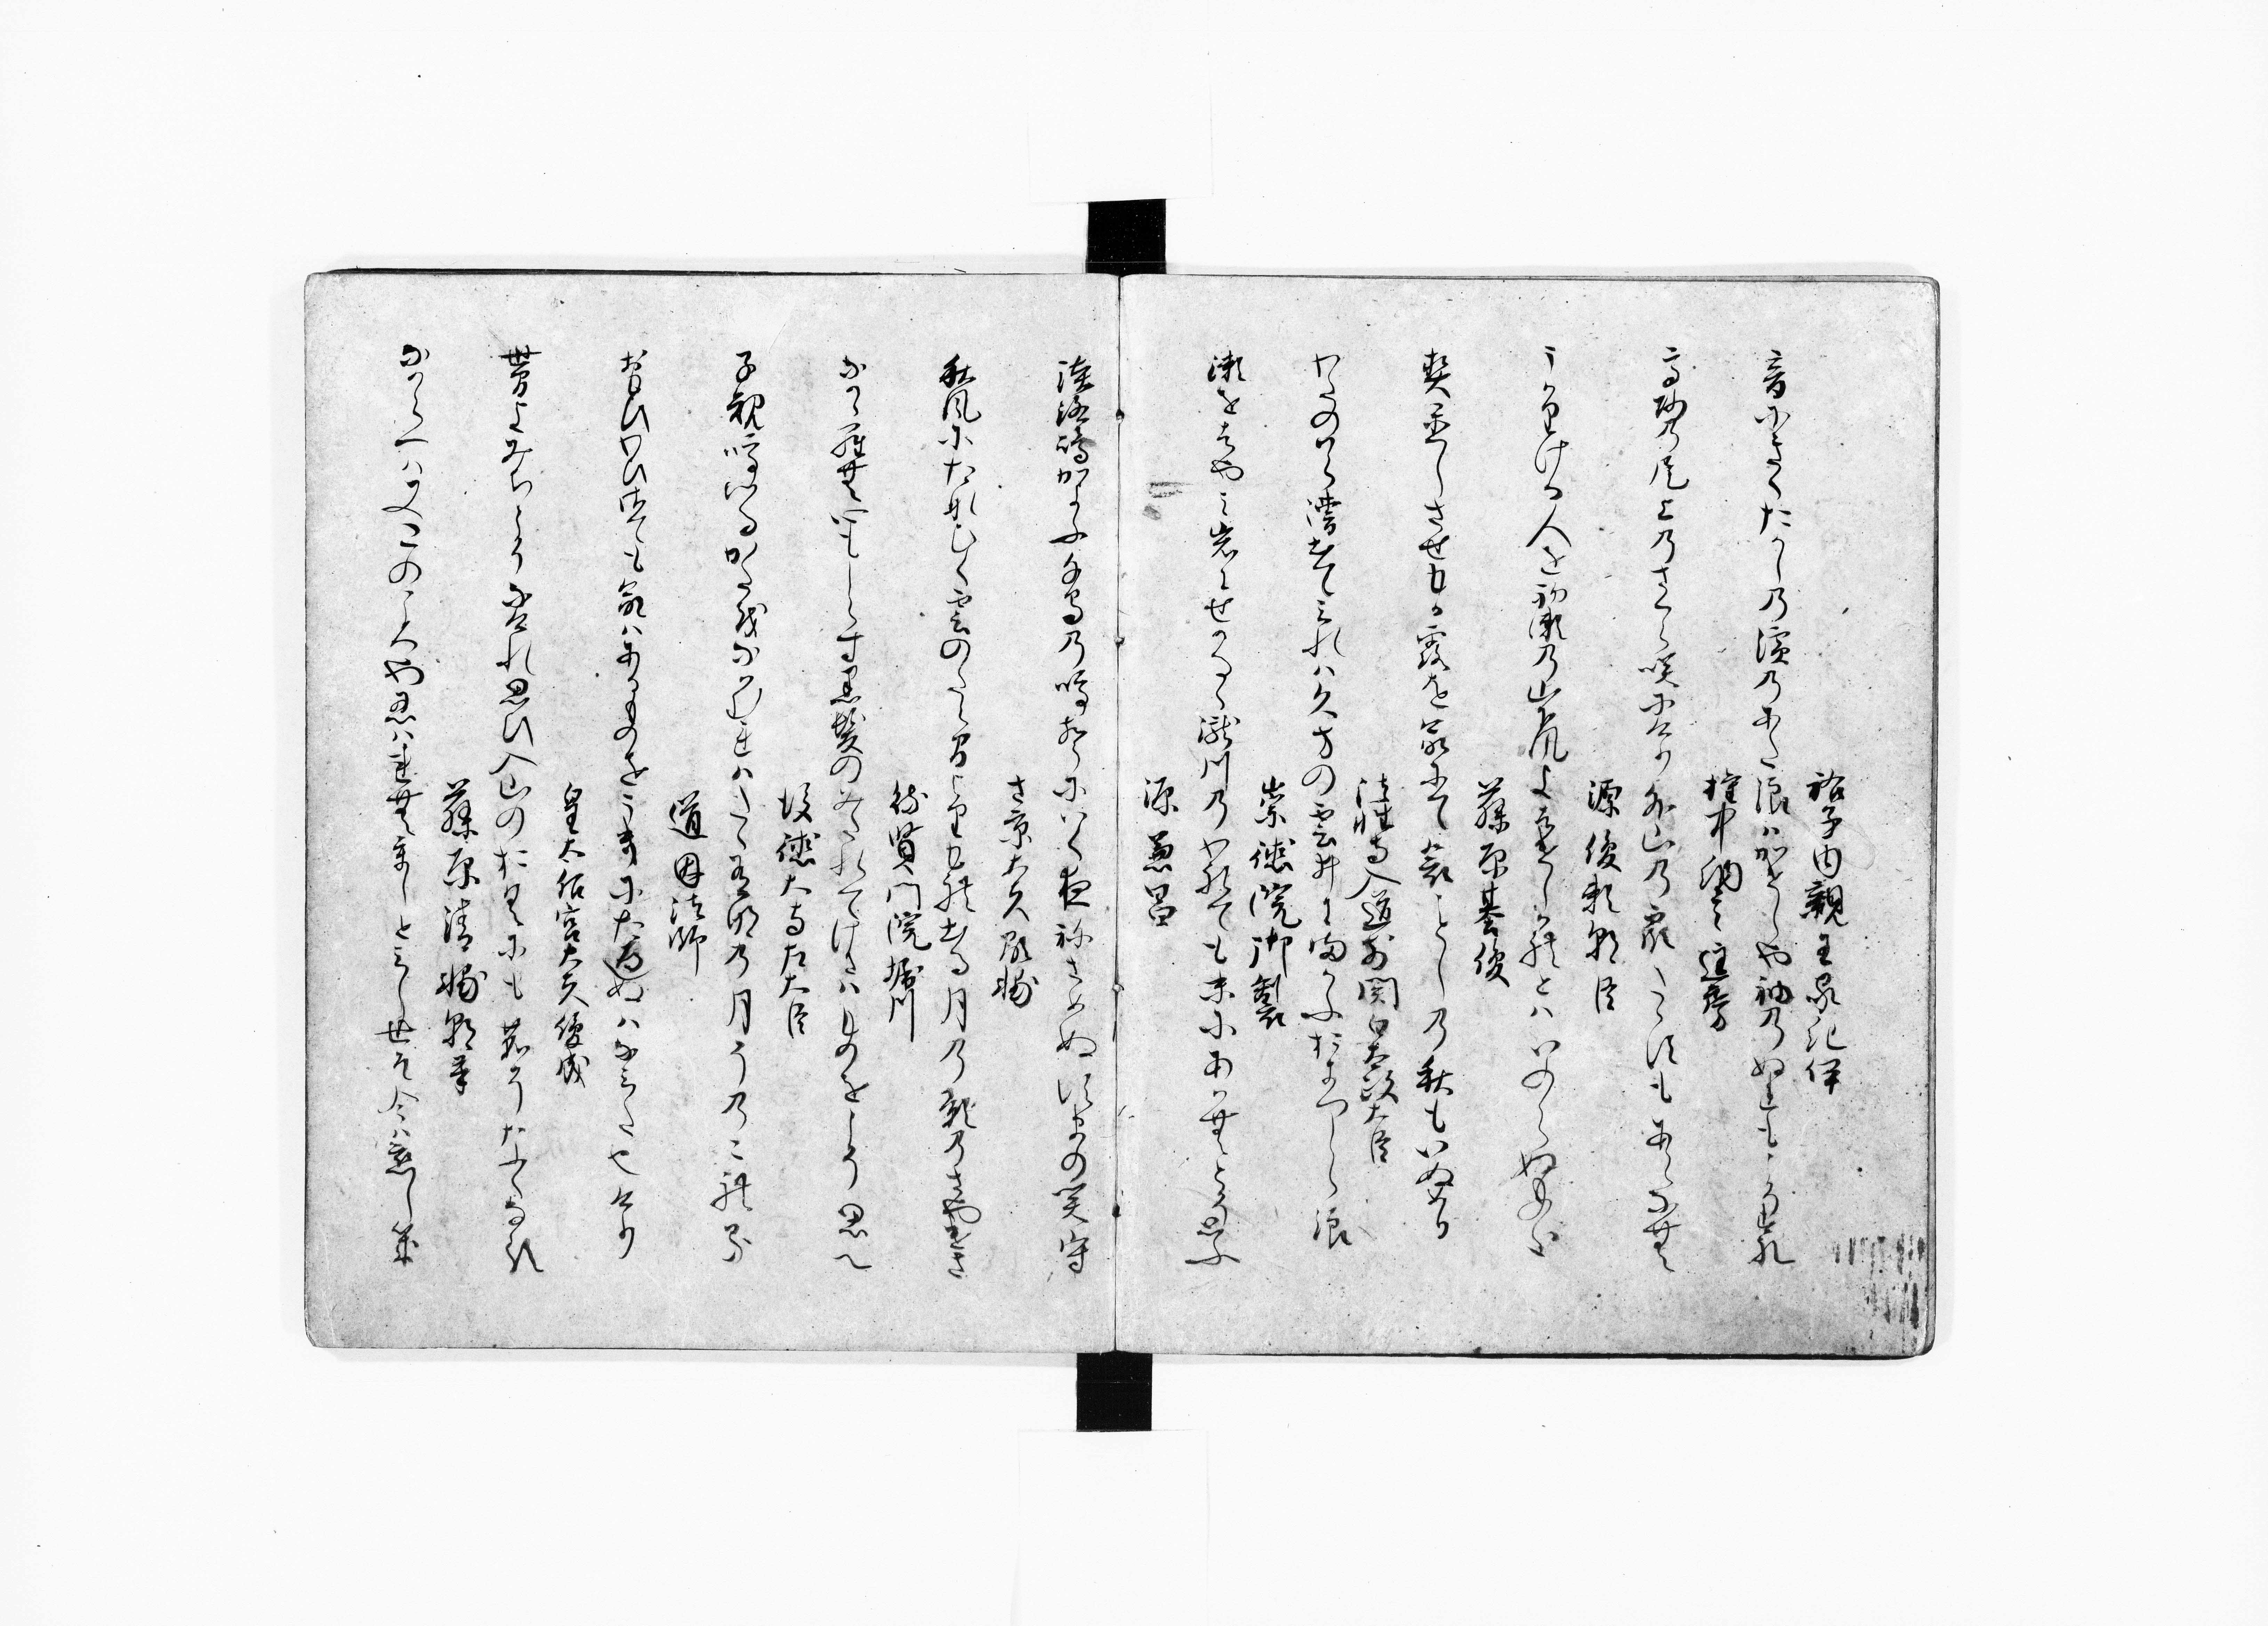 祐子内親王家紀伊
音にきくたかしの濱のあた浪はかけしや袖のぬれもこそすれ
権中納言匡房
高砂の尾上のさくら咲にけり外山の霞たゝすもあらなむ
源俊頼朝臣
うかりける人を初瀬の山颪よはけしかれとはいのらぬ物を
藤原基俊
契をきしさせもか露を命にて哀ことしの秋もいぬめり
法性寺入道前関白太政大臣
わたのはら漕出てみれは久方の雲井にまかふおきつしら浪
崇徳院御製
瀬をはやみ岩にせかるゝ瀧川のわれても末にあはむとそ思ふ
源兼昌
淡路嶋かよふ千鳥の鳴声にいく夜ねさめぬすまの関守
左京大夫顕輔
秋風にたなひく雲のたえ間よりもれ出る月の影のさやけさ
待賢門院堀川
なかゝらむ心もしらす黒髪のみたれてけさは物をこそ思へ
後徳大寺左大臣
子規鳴つるかたを詠れはたゝ有明の月そのこれる
道因法師
おもひわひ扨も命はある物をうきにたへぬはなみたなりけり
皇太后宮大夫俊成
世中よみちこそなけれ思ひ入山のおくにも鹿そなくなる
藤原清輔朝臣
なからへは又このころや忍はれむうしとみし世そ今は恋しき